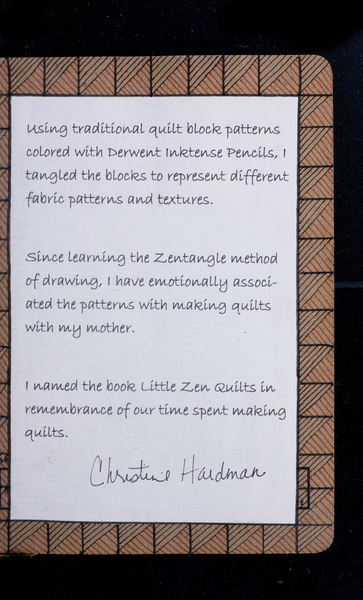 Using traditional quilt block patterns
colored with Derwent Inktense Pencils, I
tangled the blocks to represent different
fabric patterns and textures.
Since learning the Zentangle method
of drawing, I have emotionally associ-
ated the patterns with making quilts
with my mother.
I named the book Little Zen Quilts in
remembrance of our time spent making
quilts.
Christine Hardman